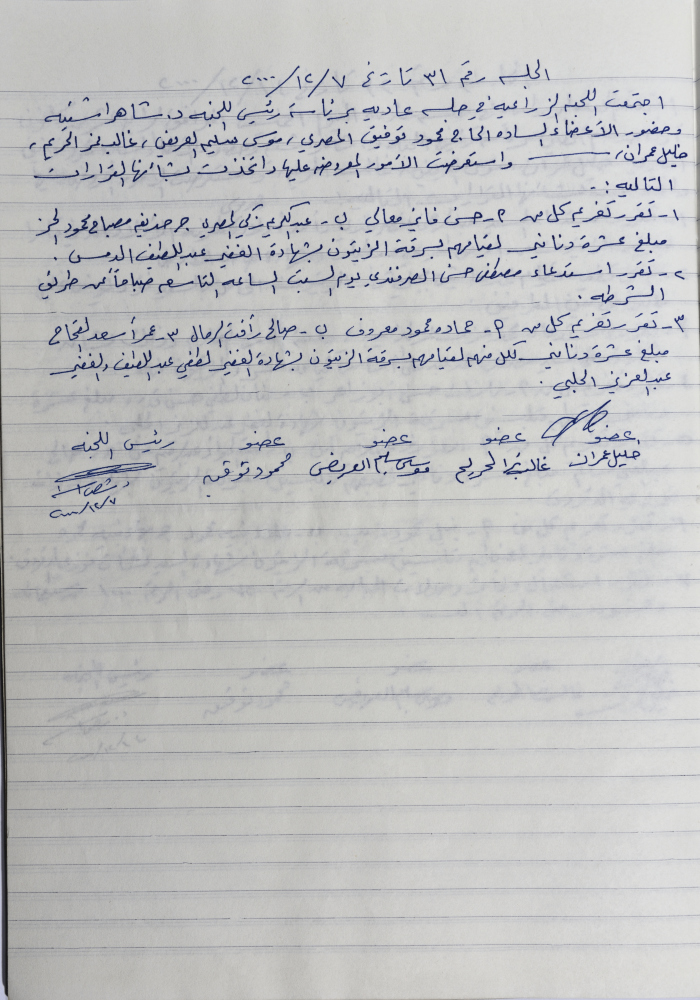 الجلسه رقم ٣١ تاريخ ٧/١٢/٢٠٠٠
اجتمعت اللجنه الزراعيه في جلسه عاديه برئاسة رئيس اللجنه د. شاهر اشتيه
وحضور الأعضاء الساده الحاج محمود توفيق المصري، موسى سليم العريض، غالب نمر الحريم،
خليل عمران، واستعرضت الأمور المعروضه عليها واتخذت بشأنها القرارات
التاليه :-
١- تقرر تغريم كل من ٢- حسن فايز معالي ب- عبد الكريم زكي المصري جـ حذيفه مصباح محمود
مبلغ عشرة دنانير لقيامهم بسرقة الزيتون بشهادة الغفير عبد اللطيف .
٢- تقرر استدعاء مصطفى حسن الصرفندي يوم السبت الساعه التاسعه صباحاً عن طريق
الشرطه .
٣- تقرر تغريم كل من ٢- حماده محمود معروف ب- صالح رأفت الرمال ٣- عمر أسعد
مبلغ عشرة دنانير لكل منهم لقيامهم بسرقة الزيتون بشهادة الغفير لطفي عبد اللطيف والغفير
عبد العزيز الحلبي .
عضو عضو عضو عضو رئيس اللجنه
خليل عمران غالب نمر الحريم موسى سليم العريض محمود توفيق
٧/١٢/٢٠٠٠